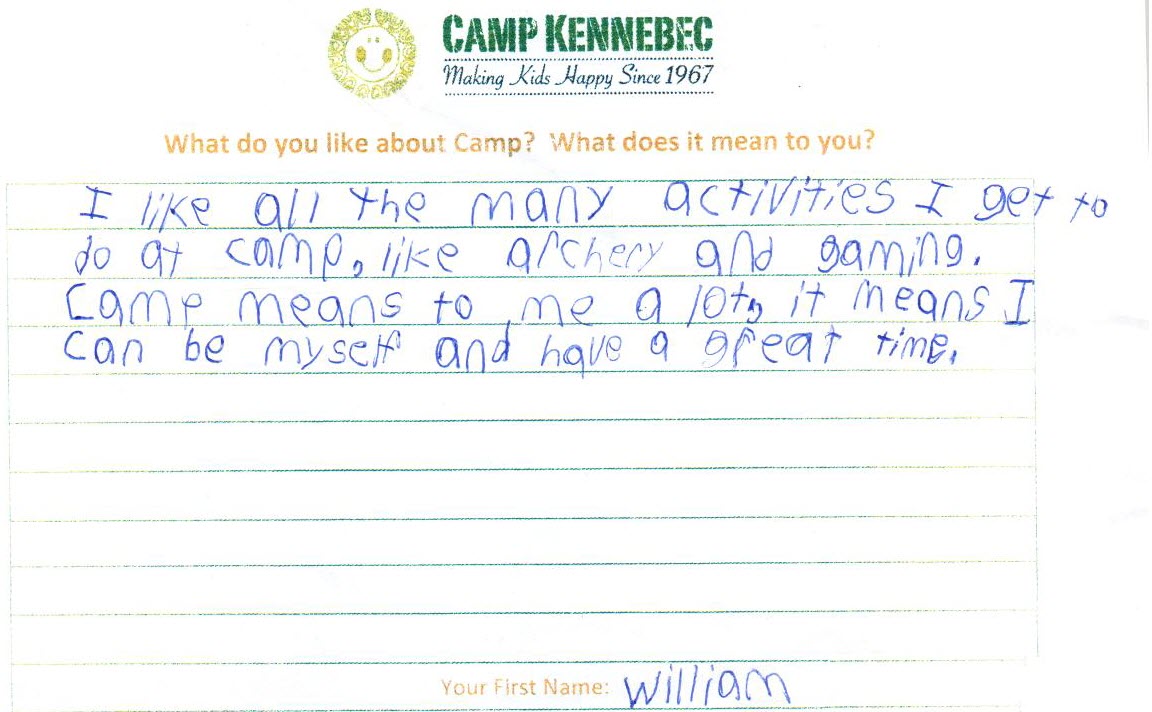 CAMP KENNEBEC
Making Kids Happy Since 1967
What do you like about Camp? What does it mean to you?
I like all the many activities I get to
do at camp, like archery and gaming.
Came means to me a lot, it means I
can be myself and have a great time.
Your First Name: William